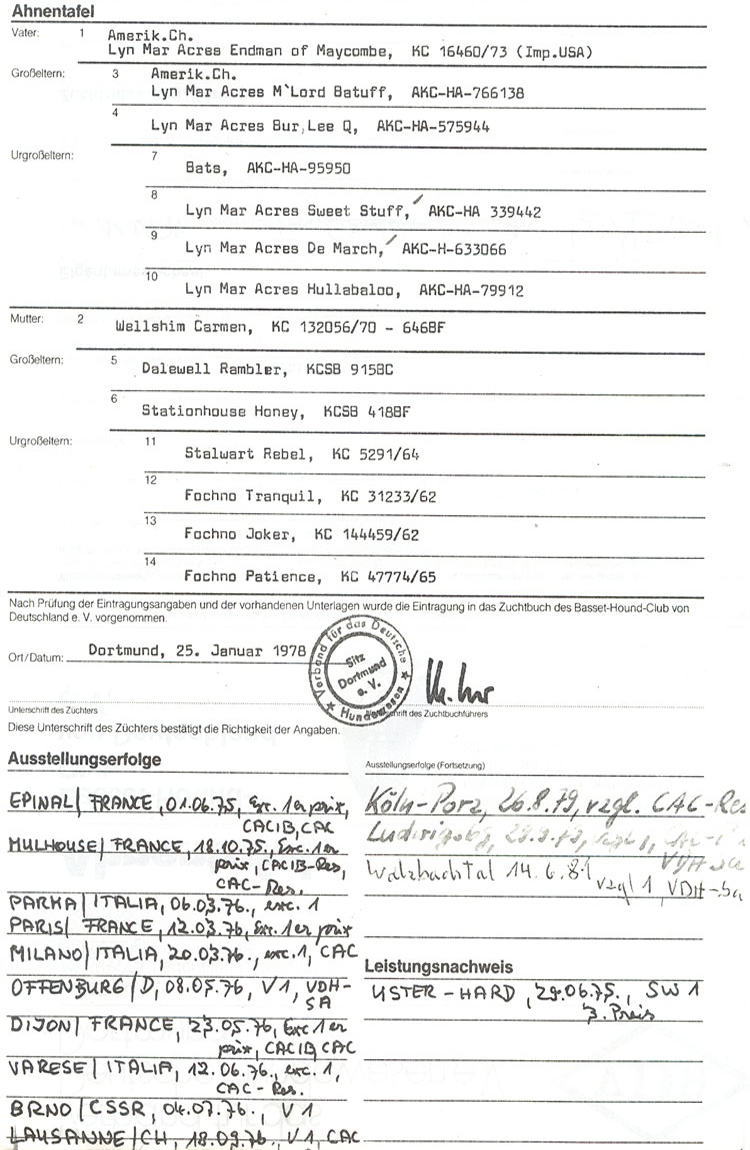 Ahnentafel
Vater: 1 Amerik.Ch.
Lyn Mar Acres Endman of Maycombe, KC 16460/73 (Imp.USA)
Großeltern: 3 Amerik.Ch.
Lyn Mar Acres M`Lord Batuff, AKC-HA-766138
4 Lyn Mar Acres Bur Lee Q, AKC-HA-575944
Urgroßeltern: 7 Bats, AKC-HA-95950
8 Lyn Mar Acres Sweet Stuff, AKC-HA 339442
9 Lyn Mar Acres De March, AKC-H-633066
10 Lyn Mar Acres Hullabaloo, AKC-HA-79912
Mutter: 2 Wellshim Carmen, KC 132056/70 - 646BF
Großeltern: 5 Dalewell Rambler, KCSB 915BC
6 Stationhouse Honey, KCSB 418BF
Urgroßeltern: 11 Stalwart Rebel, KC 5291/64
12 Fochno Tranquil, KC 31233/62
13 Fochno Joker, KC 144459/62
14 Fochno Patience, KC 47774/65
Nach Prüfung der Eintragungsangaben und der vorhandenen Unterlagen wurde die Eintragung in das Zuchtbuch des Basset-Hound-Club von
Deutschland e. V. vorgenommen.
Ort/Datum: Dortmund, 25. Januar 1978
Verband für das Deutsche Hundewesen
Sitz
Dortmund
e. V.
Unterschrift des Züchters
schrift des Zuchtbuchführers
Diese Unterschrift des Züchters bestätigt die Richtigkeit der Angaben.
Ausstellungserfolge
EPINAL/ FRANCE, 01.06.75, Exc. 1er prix,
CACIB, CAC
MULHOUSE/ FRANCE, 18.10.75., Exc. 1er
prix, CACIB-Res,
CAC-Res.
PARMA/ ITALIA, 06.03.76., exc. 1
PARIS/ FRANCE, 12.03.76, Exc. 1er prix
MILANO/ ITALIA, 20.03.76., exc. 1, CAC
OFFENBURG/D, 08.05.76, V1, VDH-
SA
DIJON/ FRANCE, 23.05.76, Exc 1er
prix, CACIB, CAC
VARESE/ ITALIA, 12.06.76., exc. 1,
CAC-Res.
BRNO/CSSR, 04.07.76., V1
LAUSANNE/CH, 18.09.76., V1, CAC
Ausstellungserfolge (Fortsetzung)
Köln-Porz, 26.8.79, vzgl. CAC-Res
VDH
Walzbachtal 14.6.81
vzgl 1, VDH-Sa
Leistungsnachweis
USTER-HARD, 29.06.75., SW 1
3. Preis